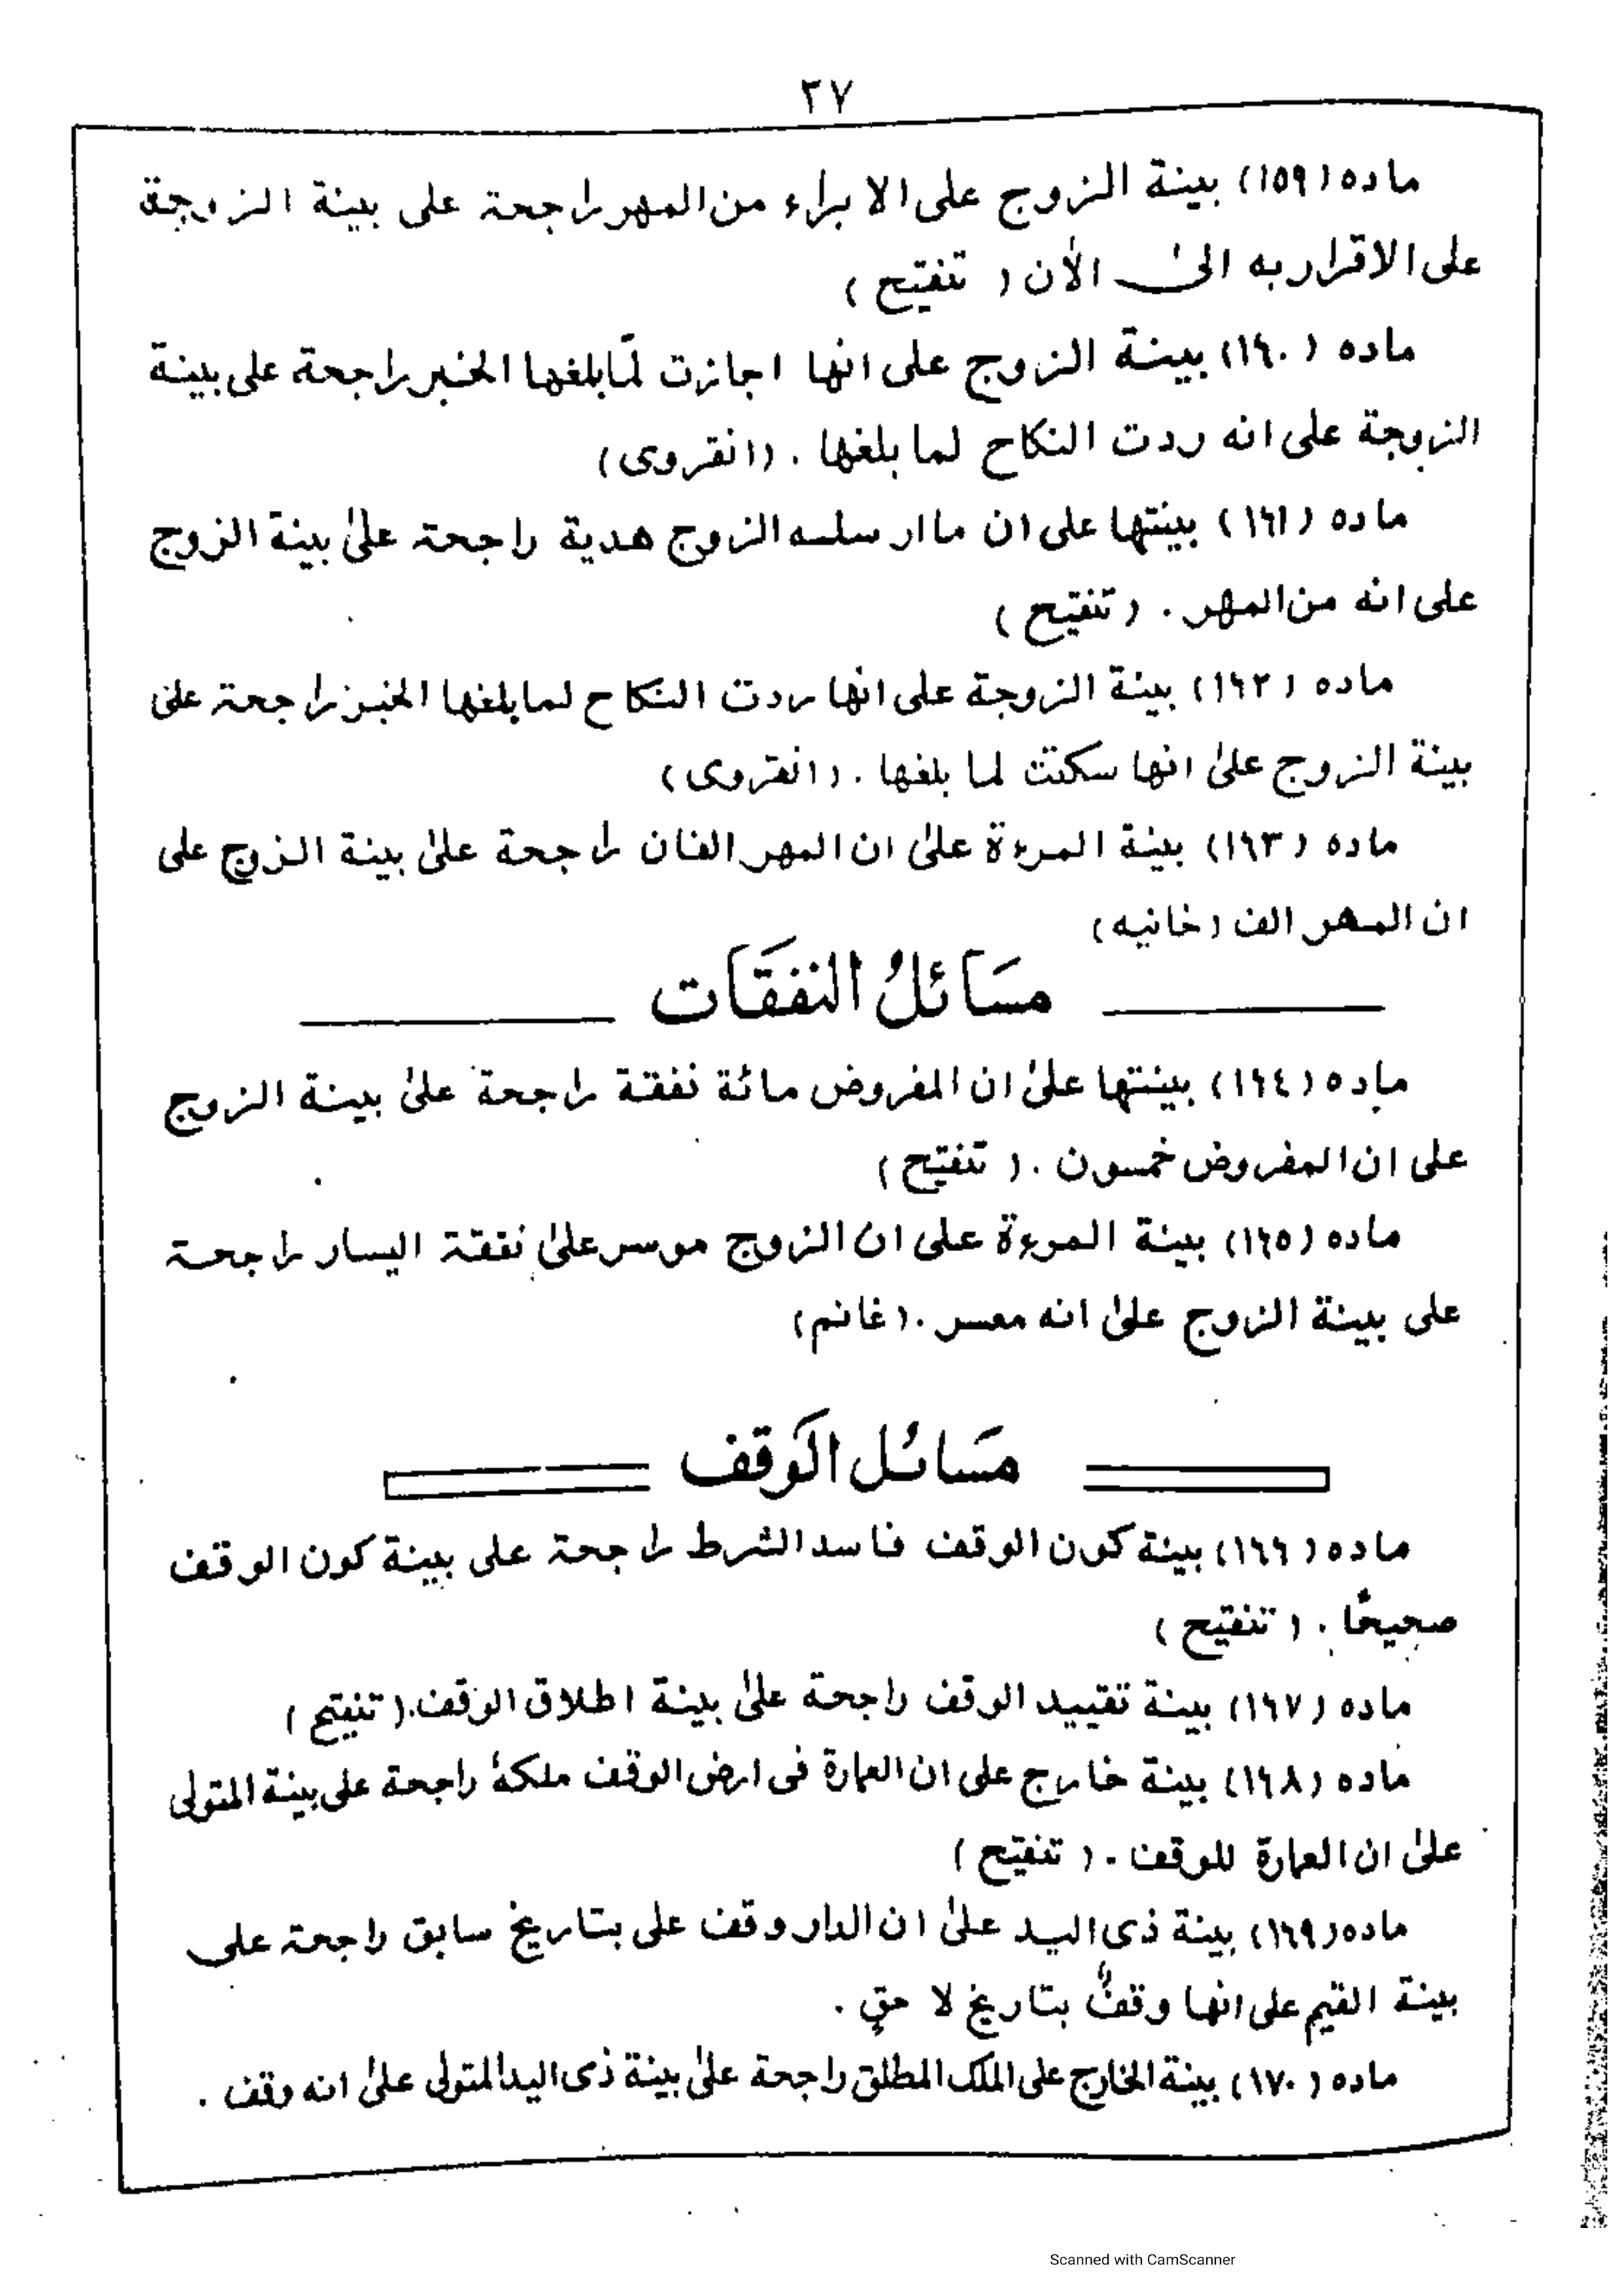 ٢٧
ماده (١٥٩) بينة الزوج على الابراء من المهر راجحة على بينة الزوجة
على الاقرار به الىٰ الأن ( تنقيح )
ماده (١٦٠) بينة الزوج على انها اجازت لمّا بلغها الخبر راجحة على بينة
الزوجة على انه ردت النكاح لما بلغها . (انقروى)
ماده (١٦١) بينتها على ان ما ارسلسه الزوج هدية راجحة علىٰ بينة الزوج
على انه من المهر . ( تنقيح )
ماده (١٦٢) بينة الزوجة على انها ردت النكاح لما بلغها الخبر راجحة على
بينة الزوج علىٰ انها سكتت لما بلغها . (انقروى)
ماده (١٦٣) بينة المرءة علىٰ ان المهر الفان راجحة علىٰ بينة الزوج على
ان المهر الف (خانيه)
مسَائلُ النفقَات
ماده (١٦٤) بينتها علىٰ ان المفروض مائة نفقة راجحة علىٰ بينة الزوج
على ان المفروض خمسون . ( تنقيح )
ماده (١٦٥) بينة المرءة على ان الزوج موسر علىٰ نفقة اليسار راجحة
على بينة الزوج علىٰ انه معسر . (غانم)
مَسائل الوَقف
ماده (١٦٦) بينة كون الوقف فاسد الشرط راجحة على بينة كون الوقف
صحيحًا . ( تنقيح )
ماده (١٦٧) بينة تقييد الوقف راجحة علىٰ بينة اطلاق الوقف . ( تنقيح )
ماده (١٦٨) بينة خارج على ان العمارة فى ارض الوقف ملكهٗ راجحة على بينة المتولى
علىٰ ان العمارة للوقف . ( تنقيح )
ماده (١٦٩) بينة ذى اليد علىٰ ان الدار وقف على بتاريخ سابق راجحة على
بينة القيم على انها وقفٌ بتاريخ لا حقٍ .
ماده (١٧٠) بينة الخارج على الملك المطلق راجحة علىٰ بينة ذى اليد المتولى علىٰ انه وقف .
Scanned with CamScanner